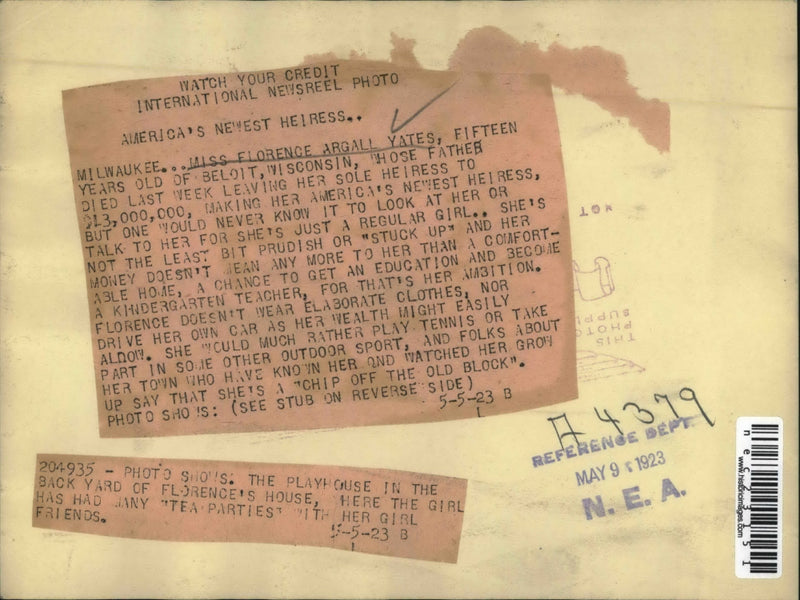 WATCH YOUR CREDIT
INTERNATIONAL NEWSREEL PHOTO
AMERICA'S NEWEST HEIRESS..
MILWAUKEE...MISS FLORENCE ARGALL YATES, FIFTEEN
YEARS OLD OF BELOIT,WISCONSIN, WHOSE FATHER
DIED LAST WEEK LEAVING HER SOLE HEIRESS TO
$13,000,000, MAKING HER AMERICA'S NEWEST HEIRESS,
BUT ONE WOULD NEVER KNOW IT TO LOOK AT HER OR
TALK TO HER FOR SHE'S JUST A REGULAR GIRL.. SHE'S
NOT THE LEAST BIT PRUDISH OR "STUCK UP" AND HER
MONEY DOESN'T MEAN ANY MORE TO HER THAN A COMFORT-
ABLE HOME, A CHANCE TO GET AN EDUCATION AND BECOME
A KINDERGARTEN TEACHER, FOR THAT'S HER AMBITION.
FLORENCE DOESN'T WEAR ELABORATE CLOTHES, NOR
DRIVE HER OWN CAR AS HER WEALTH MIGHT EASILY
ALLOW. SHE WOULD MUCH RATHER PLAY TENNIS OR TAKE
PART IN SOME OTHER OUTDOOR SPORT, AND FOLKS ABOUT
HER TOWN WHO HAVE KNOWN HER AND WATCHED HER GROW
UP SAY THAT SHE'S A "CHIP OFF THE OLD BLOCK".
PHOTO SHOWS: (SEE STUB ON REVERSE SIDE)
5-5-23 B
204935 - PHOTO SHOWS: THE PLAYHOUSE IN THE
BACK YARD OF FLORENCE'S HOUSE, WHERE THE GIRL
HAS HAD MANY "TEA PARTIES" WITH HER GIRL
FRIENDS.
5-5-23 B
THIS
PHOTO
SUPPL
A 4379
REFERENCE DEPT.
MAY 9 1923
N. E. A.
www.historicimages.com